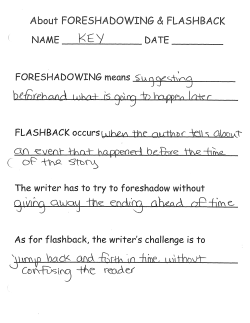 About FORESHADOWING & FLASHBACK
NAME KEY DATE
FORESHADOWING means suggesting
beforehand what is going to happen later
FLASHBACK occurs when the author tells about
an event that happened before the time
of the story
The writer has to try to foreshadow without
giving away the ending ahead of time
As for flashback, the writer's challenge is to
jump back and forth in time without
confusing the reader